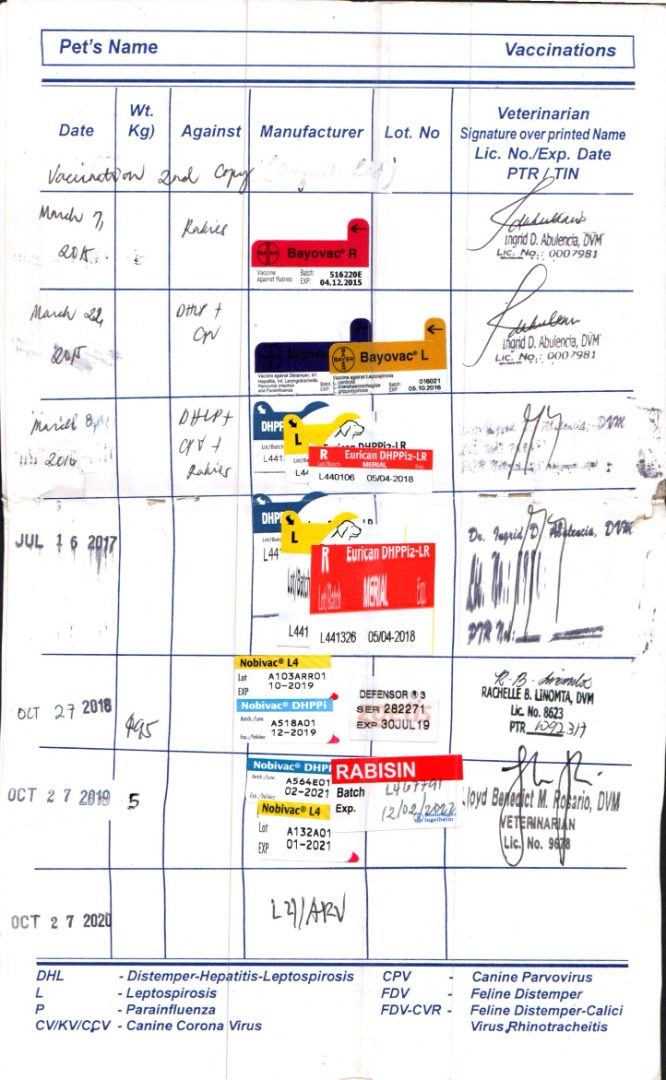 Pet's Name Vaccinations
Date Wt. Kg) Against Manufacturer Lot. No Veterinarian
Signature over printed Name
Lic. No./Exp. Date
PTR / TIN
Vaccination 2nd Copy
March 7, 2015 Rabies
Bayovac® R
Vaccine against Rabies Batch: 516220E
EXP: 04.12.2015
Ingrid D. Abulencia, DVM
Lic. No.: 0007981
March 22, 2015 DHLP + CPV
Bayovac
Bayovac® L
Vaccine against Leptospirosis
Batch: 016021
EXP: 06.10.2016
Ingrid D. Abulencia, DVM
Lic. No.: 0007981
March 8, 2016 DHLP + CPV + Rabies
DHPP
L
R Eurican DHPPi2-LR
Lot/Batch MERIAL Exp.
L440106 05/04-2018
Abulencia, DVM
JUL 16 2017
DHPP
L
R Eurican DHPPi2-LR
Lot/Batch MERIAL Exp.
L441326 05/04-2018
Dr. Ingrid D. Abulencia, DVM
PTR
OCT 27 2018
Nobivac® L4
Lot A103ARR01
EXP 10-2019
Nobivac® DHPPi
A518A01
12-2019
DEFENSOR ® 3
SER 282271
EXP 30JUL19
RACHELLE B. LINOMTA, DVM
Lic. No. 8623
PTR
OCT 27 2019 5
Nobivac® DHPPi
A564E01
02-2021
Nobivac® L4
Lot A132A01
Exp. 01-2021
RABISIN
Batch L467791
Exp. 12/02/2022
Lloyd Benedict M. Rosario, DVM
VETERINARIAN
Lic. No. 9678
OCT 27 2020
DHL - Distemper-Hepatitis-Leptospirosis CPV - Canine Parvovirus
L - Leptospirosis FDV - Feline Distemper
P - Parainfluenza FDV-CVR - Feline Distemper-Calici
CV/KV/CCV - Canine Corona Virus Virus,Rhinotracheitis